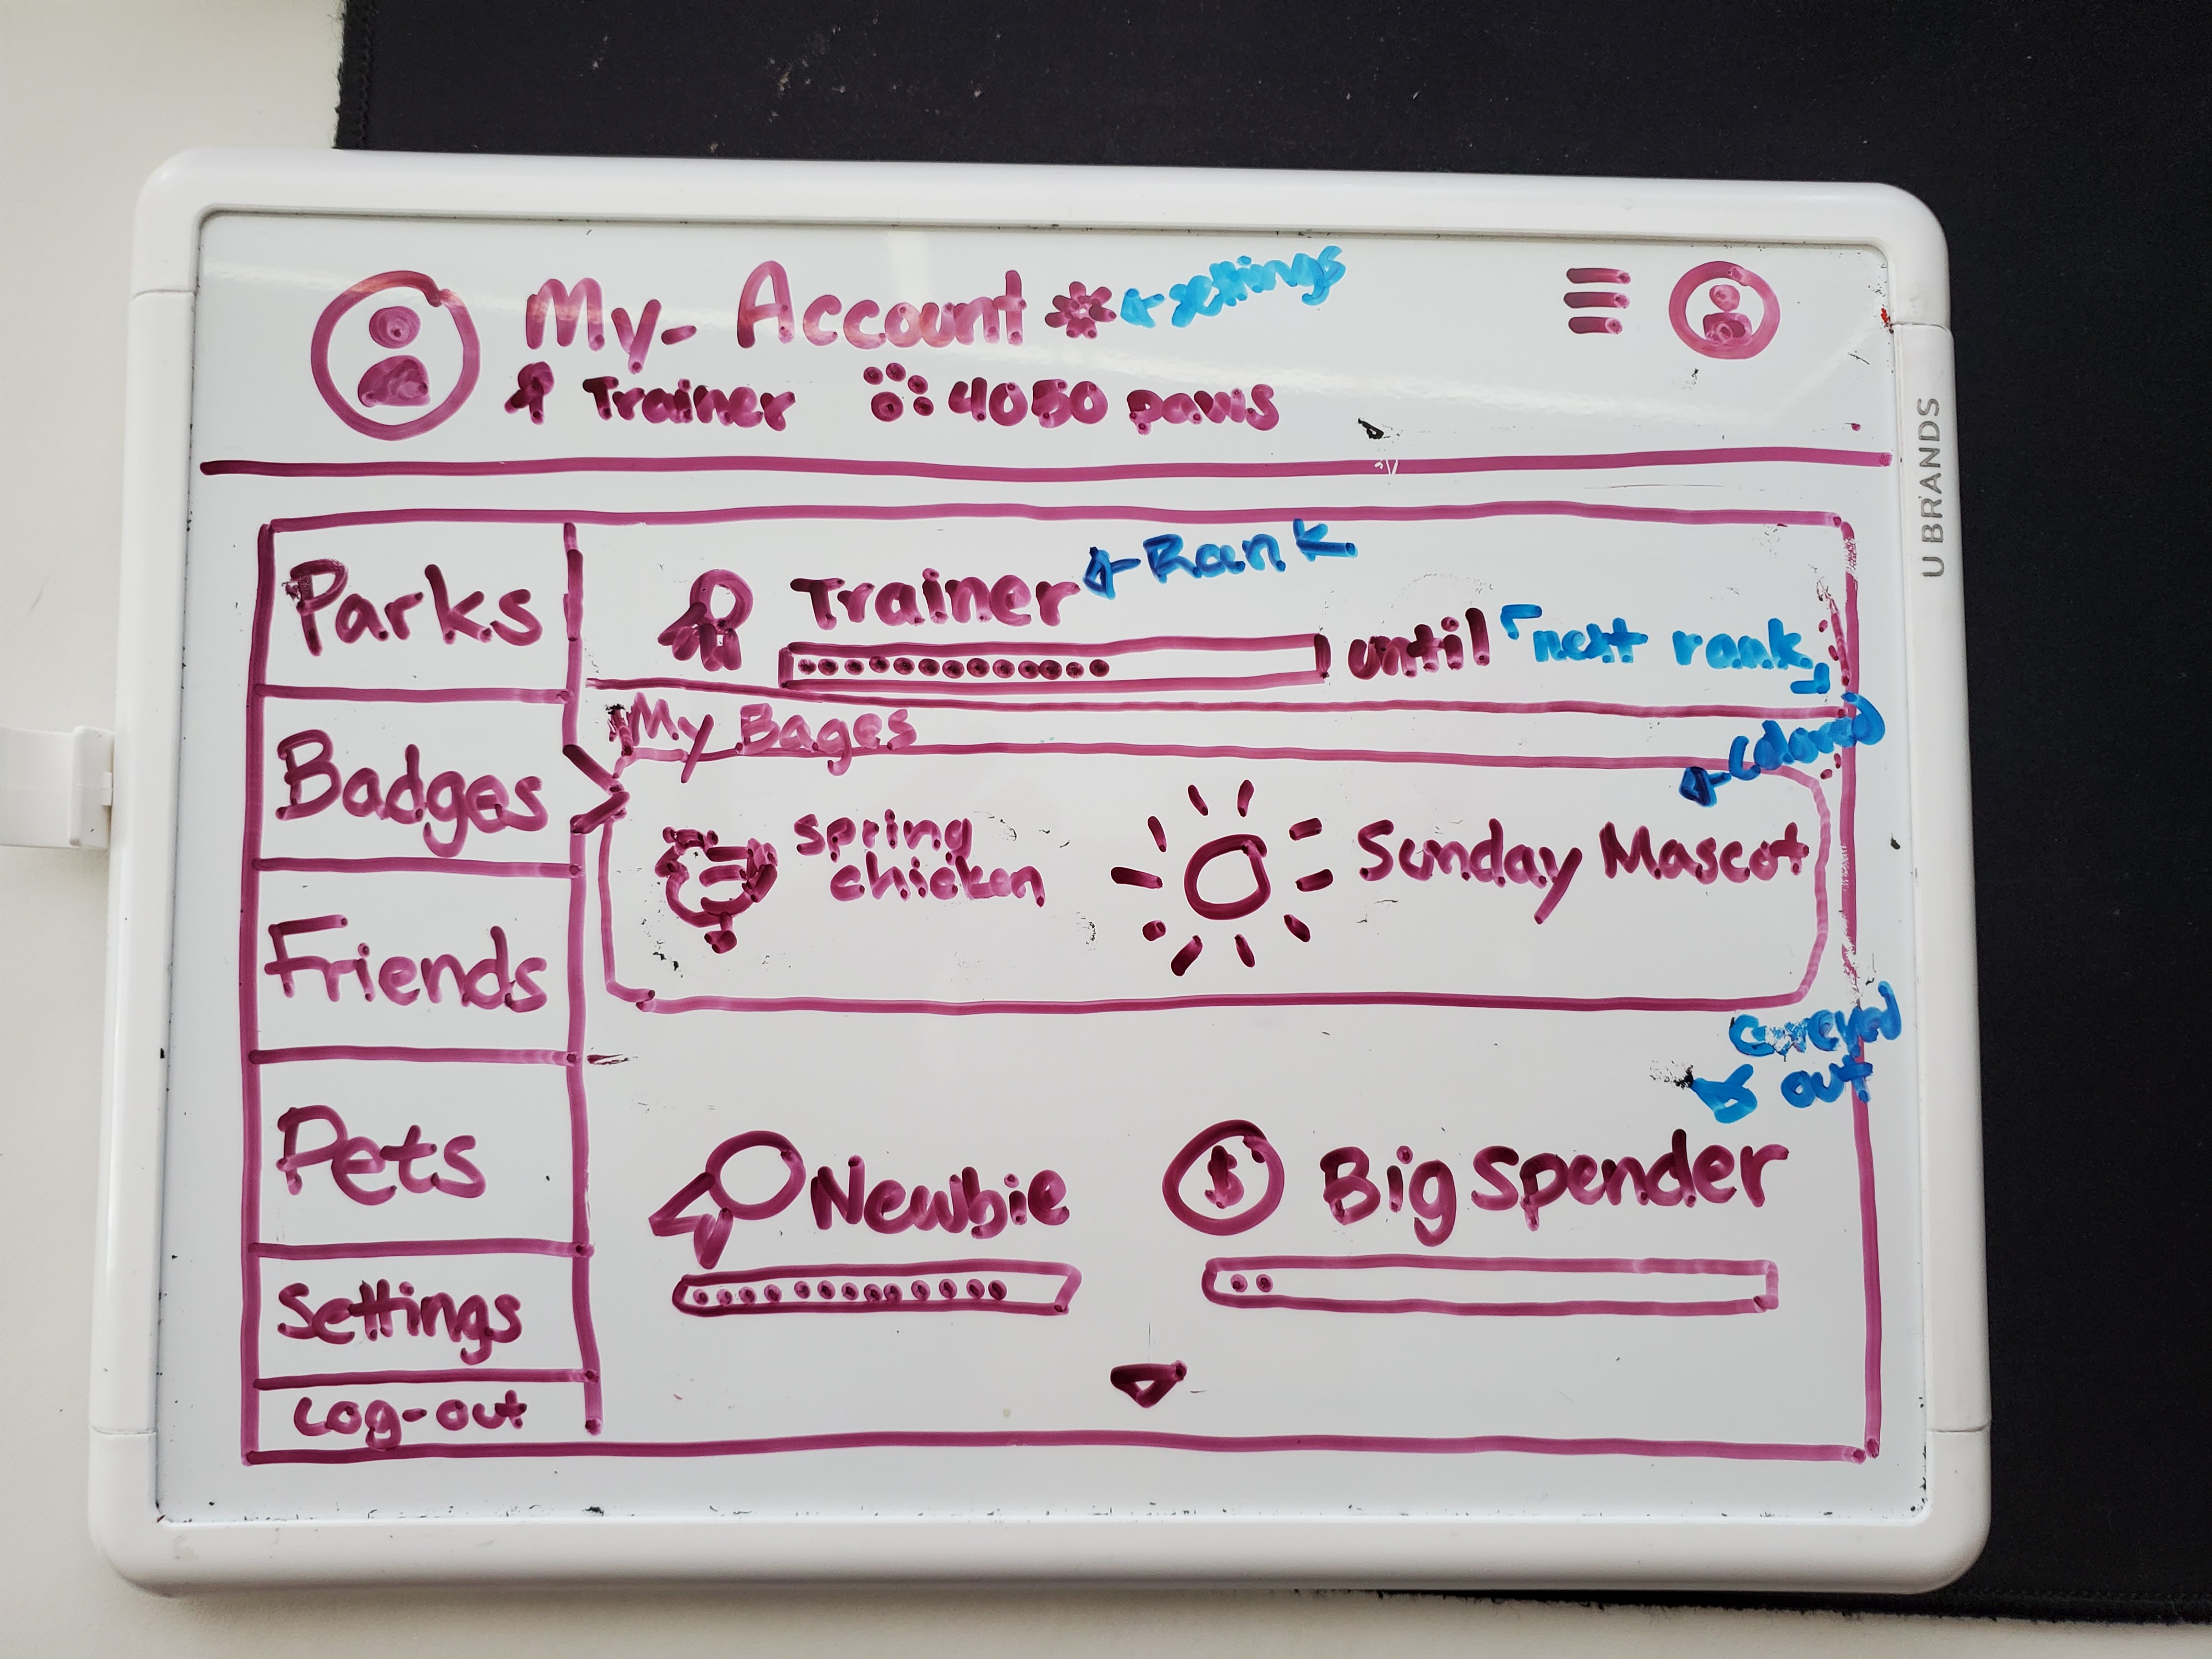 My- Account settings
Trainer 4050 paws
U BRANDS
Parks
Badges
Friends
Pets
Settings
Log-out
Trainer Rank
until next rank
My Bages
colored
Spring
chicken
Sunday Mascot
Greyed
out
Newbie
$ Big Spender